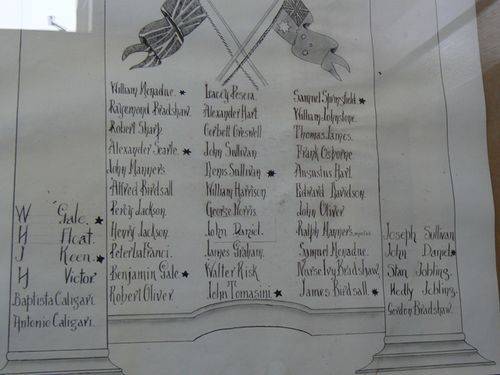 William Menadue. *
Raymond Bradshaw.
Robert Sharp.
Alexander Searle. *
John Manners.
Alfred Birdsall
Percy Jackson.
Henry Jackson.
Peter Lafranci.
Benjamin Gale. *
Robert Oliver.
Tracey Pesera.
Alexander Hart.
Corbett Creswell
John Sullivan
Denis Sullivan *
William Harrison
George Norris.
John Daniel.
James Graham.
Walter Risk
John Tomasini *
Samuel Springfield *
William Johnstone.
Thomas James.
Frank Osborne
Augustus Hart.
Edward Davidson.
John Oliver
Ralph Manners
Samuel Menadue.
Nurse Ivy Bradshaw.
James Birdsall *
W Gale. *
H Float.
J Keen. *
H Victor
Baptista Caligari.
Antonio Caligari.
Joseph Sullivan
John Daniel *
Stan Jobling.
Hedly Jobling.
Gordon Bradshaw.